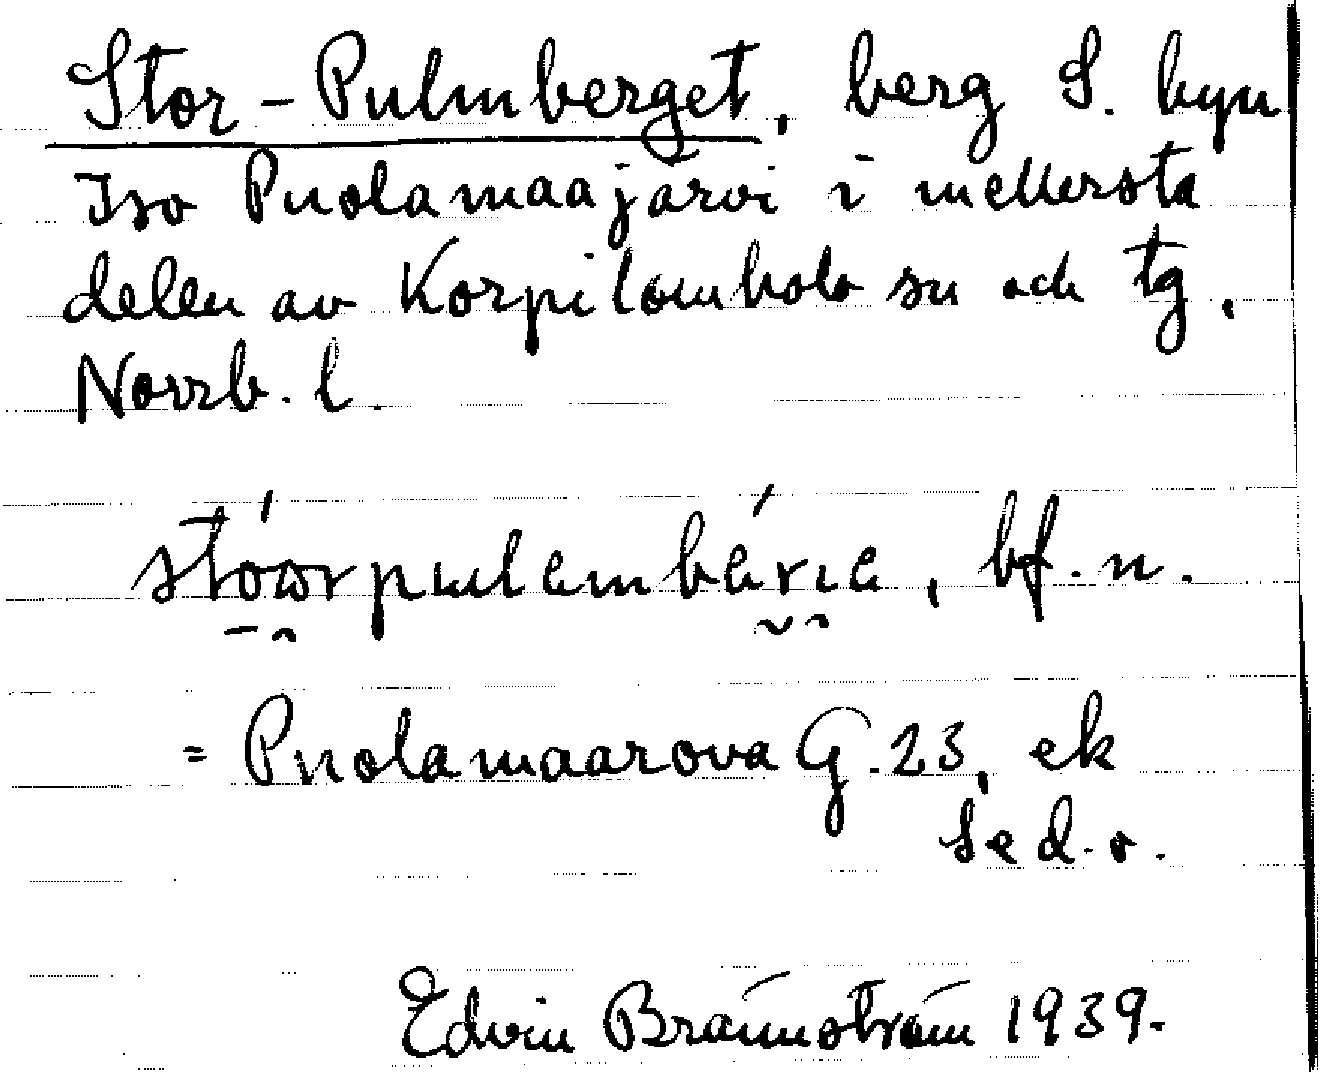 Stor-Pulmberget, berg S. byn
Iso Puolamaajärvi i mellersta
delen av Korpilombolo sn och tg,
Norrb. l.
stóωrpulembǽrıe, bf. n.
= Puolamaarova G. 23, ek
Se d. o.
Edvin Brännström 1939.